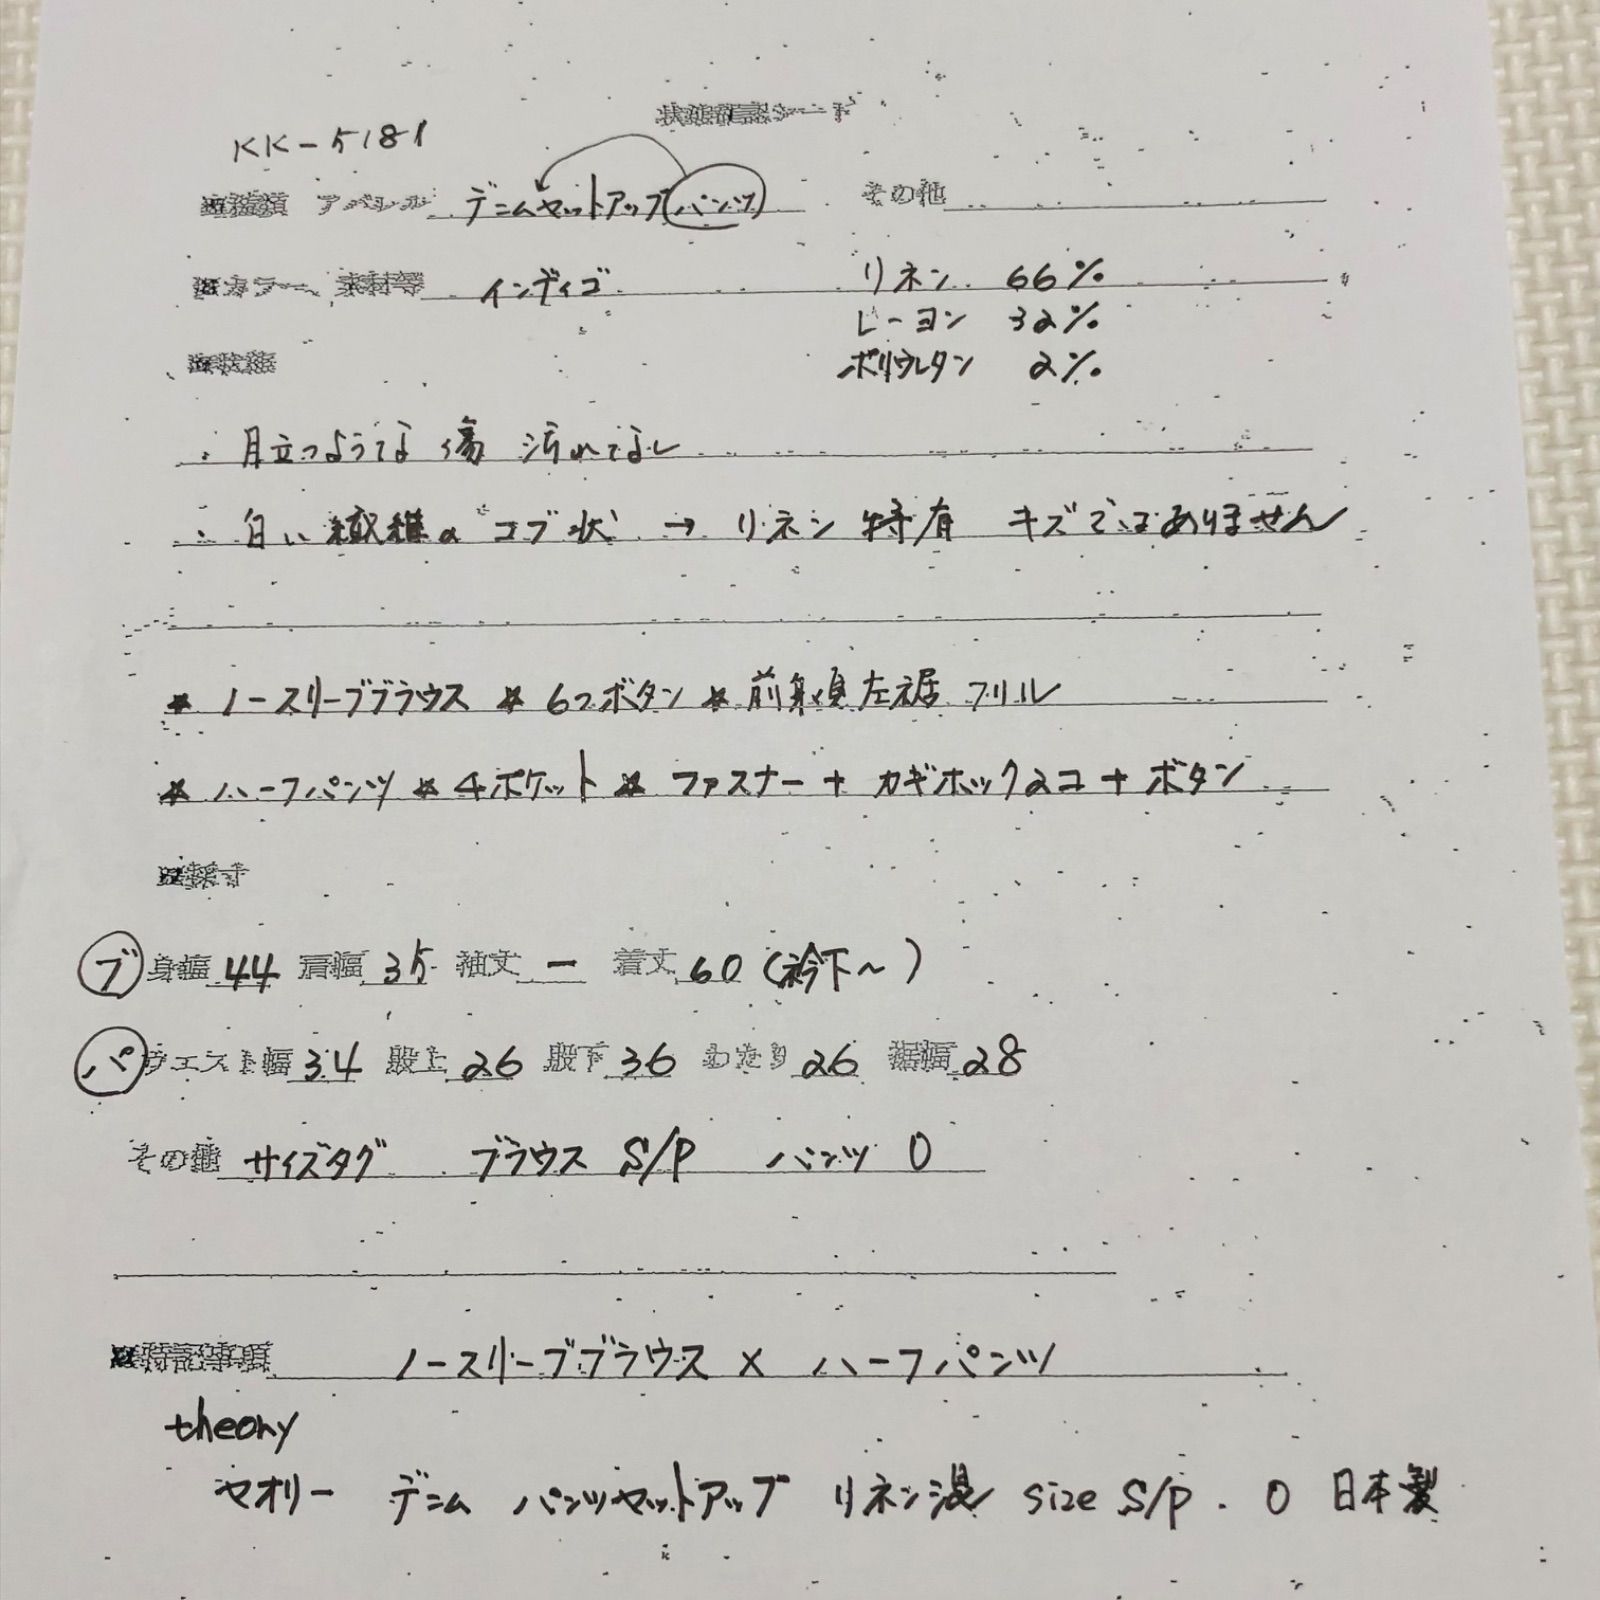 状態確認シート
KK-5181
■種類 アパレル デニムセットアップ(パンツ) その他
■カラー、素材等 インディゴ リネン 66%
レーヨン 32%
ポリウレタン 2%
■状態
・目立つような 傷 汚れなし
・白い繊維の コブ状 → リネン 特有 キズではありません
* ノースリーブブラウス * 6つボタン * 前身頃左裾 フリル
* ハーフパンツ * 4ポケット * ファスナー + カギホック2コ + ボタン
■採寸
ブ 身幅 44 肩幅 35 袖丈 ー 着丈 60 (衿下〜)
パ ウエスト幅 34 股上 26 股下 36 わたり 26 裾幅 28
その他 サイズタグ ブラウス S/P パンツ 0
■特記事項 ノースリーブブラウス × ハーフパンツ
theory
セオリー デニム パンツセットアップ リネン混 size S/P . 0 日本製